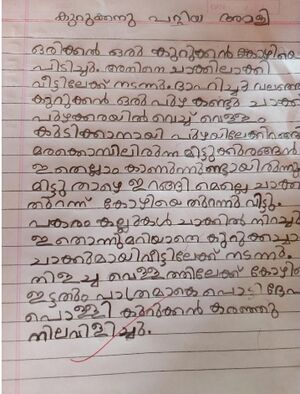 കുറുക്കനു പറ്റിയ അമളി
ഒരിക്കൽ ഒരു കുറുക്കൻ കോഴിയെ
പിടിച്ചു. അതിനെ ചാക്കിലാക്കി
വീട്ടിലേക്ക് നടന്നു. ദാഹിച്ചു വലഞ്ഞ
കുറുക്കൻ ഒരു പുഴ കണ്ടു. ചാക്ക്
പുഴക്കരയിൽ വെച്ച് വെള്ളം
കുടിക്കാനായി പുഴയിലേക്കിറങ്ങി
മരക്കൊമ്പിലിരുന്ന മിട്ടുക്കുരങ്ങൻ
ഇതെല്ലാം കാണുന്നുണ്ടായിരുന്നു
മിട്ടു താഴെ ഇറങ്ങി മെല്ലെ ചാക്ക്
തുറന്ന് കോഴിയെ തുറന്നു വിട്ടു.
പകരം കല്ലുകൾ ചാക്കിൽ നിറച്ചു
ഇതൊന്നുമറിയാതെ കുറുക്കച്ചൻ
ചാക്കുമായി വീട്ടിലേക്ക് നടന്നു.
തിളച്ച വെള്ളത്തിലേക്ക് കോഴിയെ
ഇട്ടതും പാത്രമാകെ പൊട്ടി ദേഹം
പൊള്ളി കുറുക്കൻ കരഞ്ഞു
നിലവിളിച്ചു.